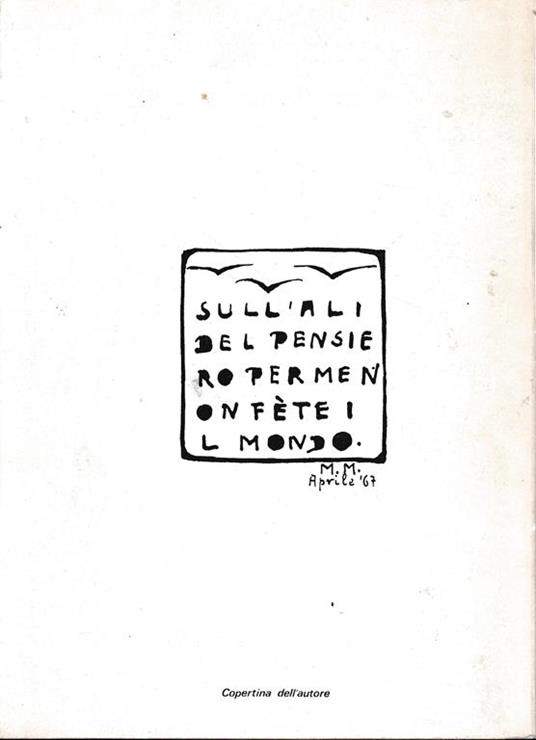 SULL'ALI
DEL PENSIE
RO PER ME N
ON FÈTE I
L MONDO.
M.M.
Aprile '67
Copertina dell'autore